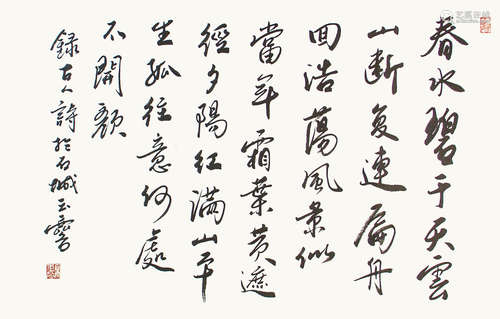 春水碧于天雲
山斷复連扁舟
回浩蕩風景似
當年霜葉黄遮
徑夕陽紅滿山平
生孤往意何處
不開顏
録古人詩於石城玉霽